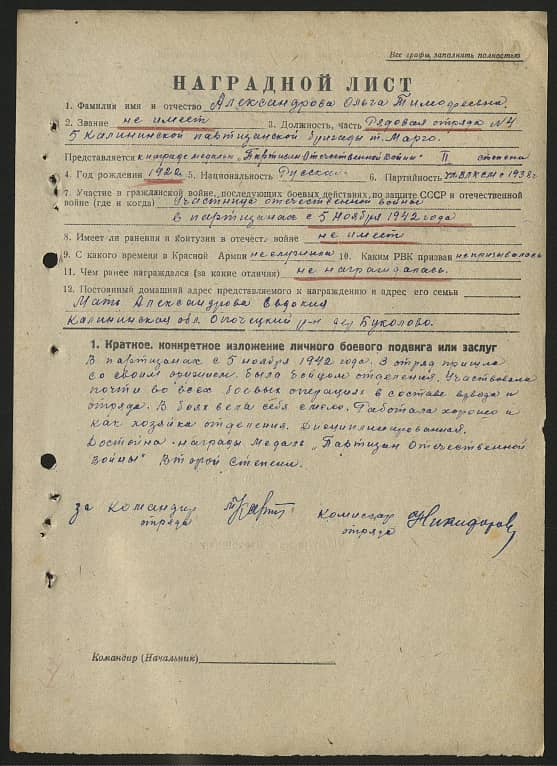 Все графы, заполнять полностью
НАГРАДНОЙ ЛИСТ
1. Фамилия имя и отчество Александрова Ольга Тимофеевна
2. Звание не имеет 3. Должность, часть Рядовая отряда №4
5 Калининской партизанской бригады т. Марго.
Представляется к награде медаль „Партизан Отечественной войны" II степени
4. Год рождения 1922 5. Национальность Русская 6. Партийность чл ВЛКСМ с 1938 г
7. Участие в гражданской войне, последующих боевых действиях, по защите СССР и отечественной
войне (где и когда) Участница отечественной войны
в партизанах с 5 ноября 1942 года
8. Имеет ли ранения и контузии в отечест. войне не имеет
9. С какого времени в Красной Армии не служила 10. Каким РВК призван не призывалась
11. Чем ранее награждался (за какие отличия) не награждалась.
12. Постоянный домашний адрес представляемого к награждению и адрес его семьи
Мать Александрова Евдокия
Калининская обл. Опочецкий р-н дер Буколово.
1. Краткое, конкретное изложение личного боевого подвига или заслуг
В партизанах с 5 ноября 1942 года. В отряд пришла
со своим оружием. Была бойцом отделения. Участвовала
почти во всех боевых операциях в составе взвода и
отряда. В боях вела себя смело. Работала хорошо и
как хозяйка отделения. Дисциплинированная.
Достойна награды медаль „Партизан Отечественной
войны" Второй степени.
за Командир Комиссар Никифоров
отряда отряда
Командир (Начальник)